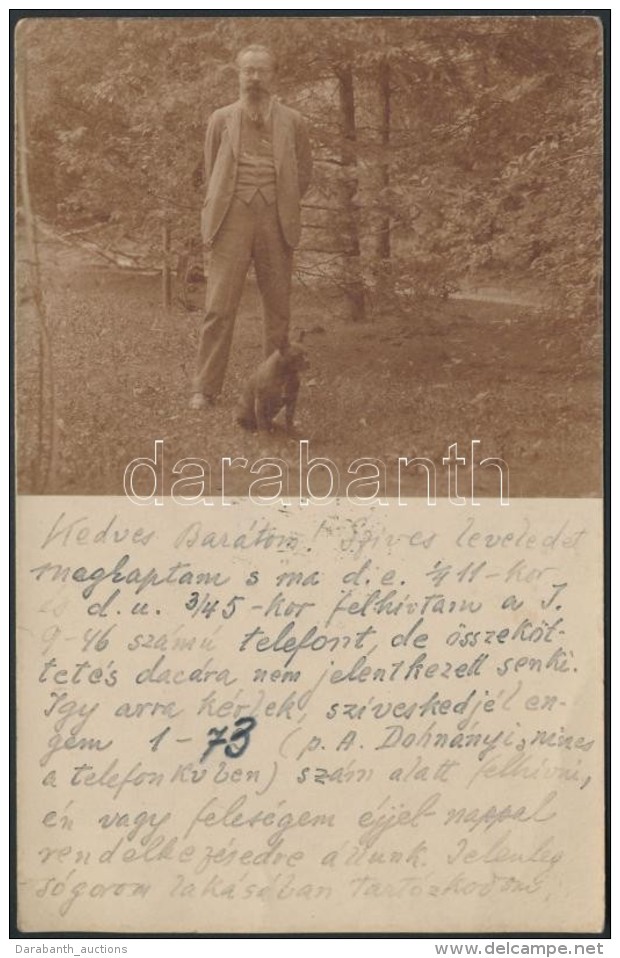 darabanth
Kedves Barátom! Szives leveledet
megkaptam s ma d.e. ¼11-kor
és d.u. 3/45-kor felhívtam a J.
9-46 számú telefont, de összeköt-
tetés dacára nem jelentkezett senki.
Így arra kérlek, szíveskedjél en-
gem 1-73 (p. A. Dohnányi, nincs
a telefonkvben) szám alatt felhívni,
én vagy feleségem éjjel-nappal
rendelkezésedre állunk. Jelenleg
sógorom lakásában tartózkodom.
Darabanth_auctions
www.delcampe.net